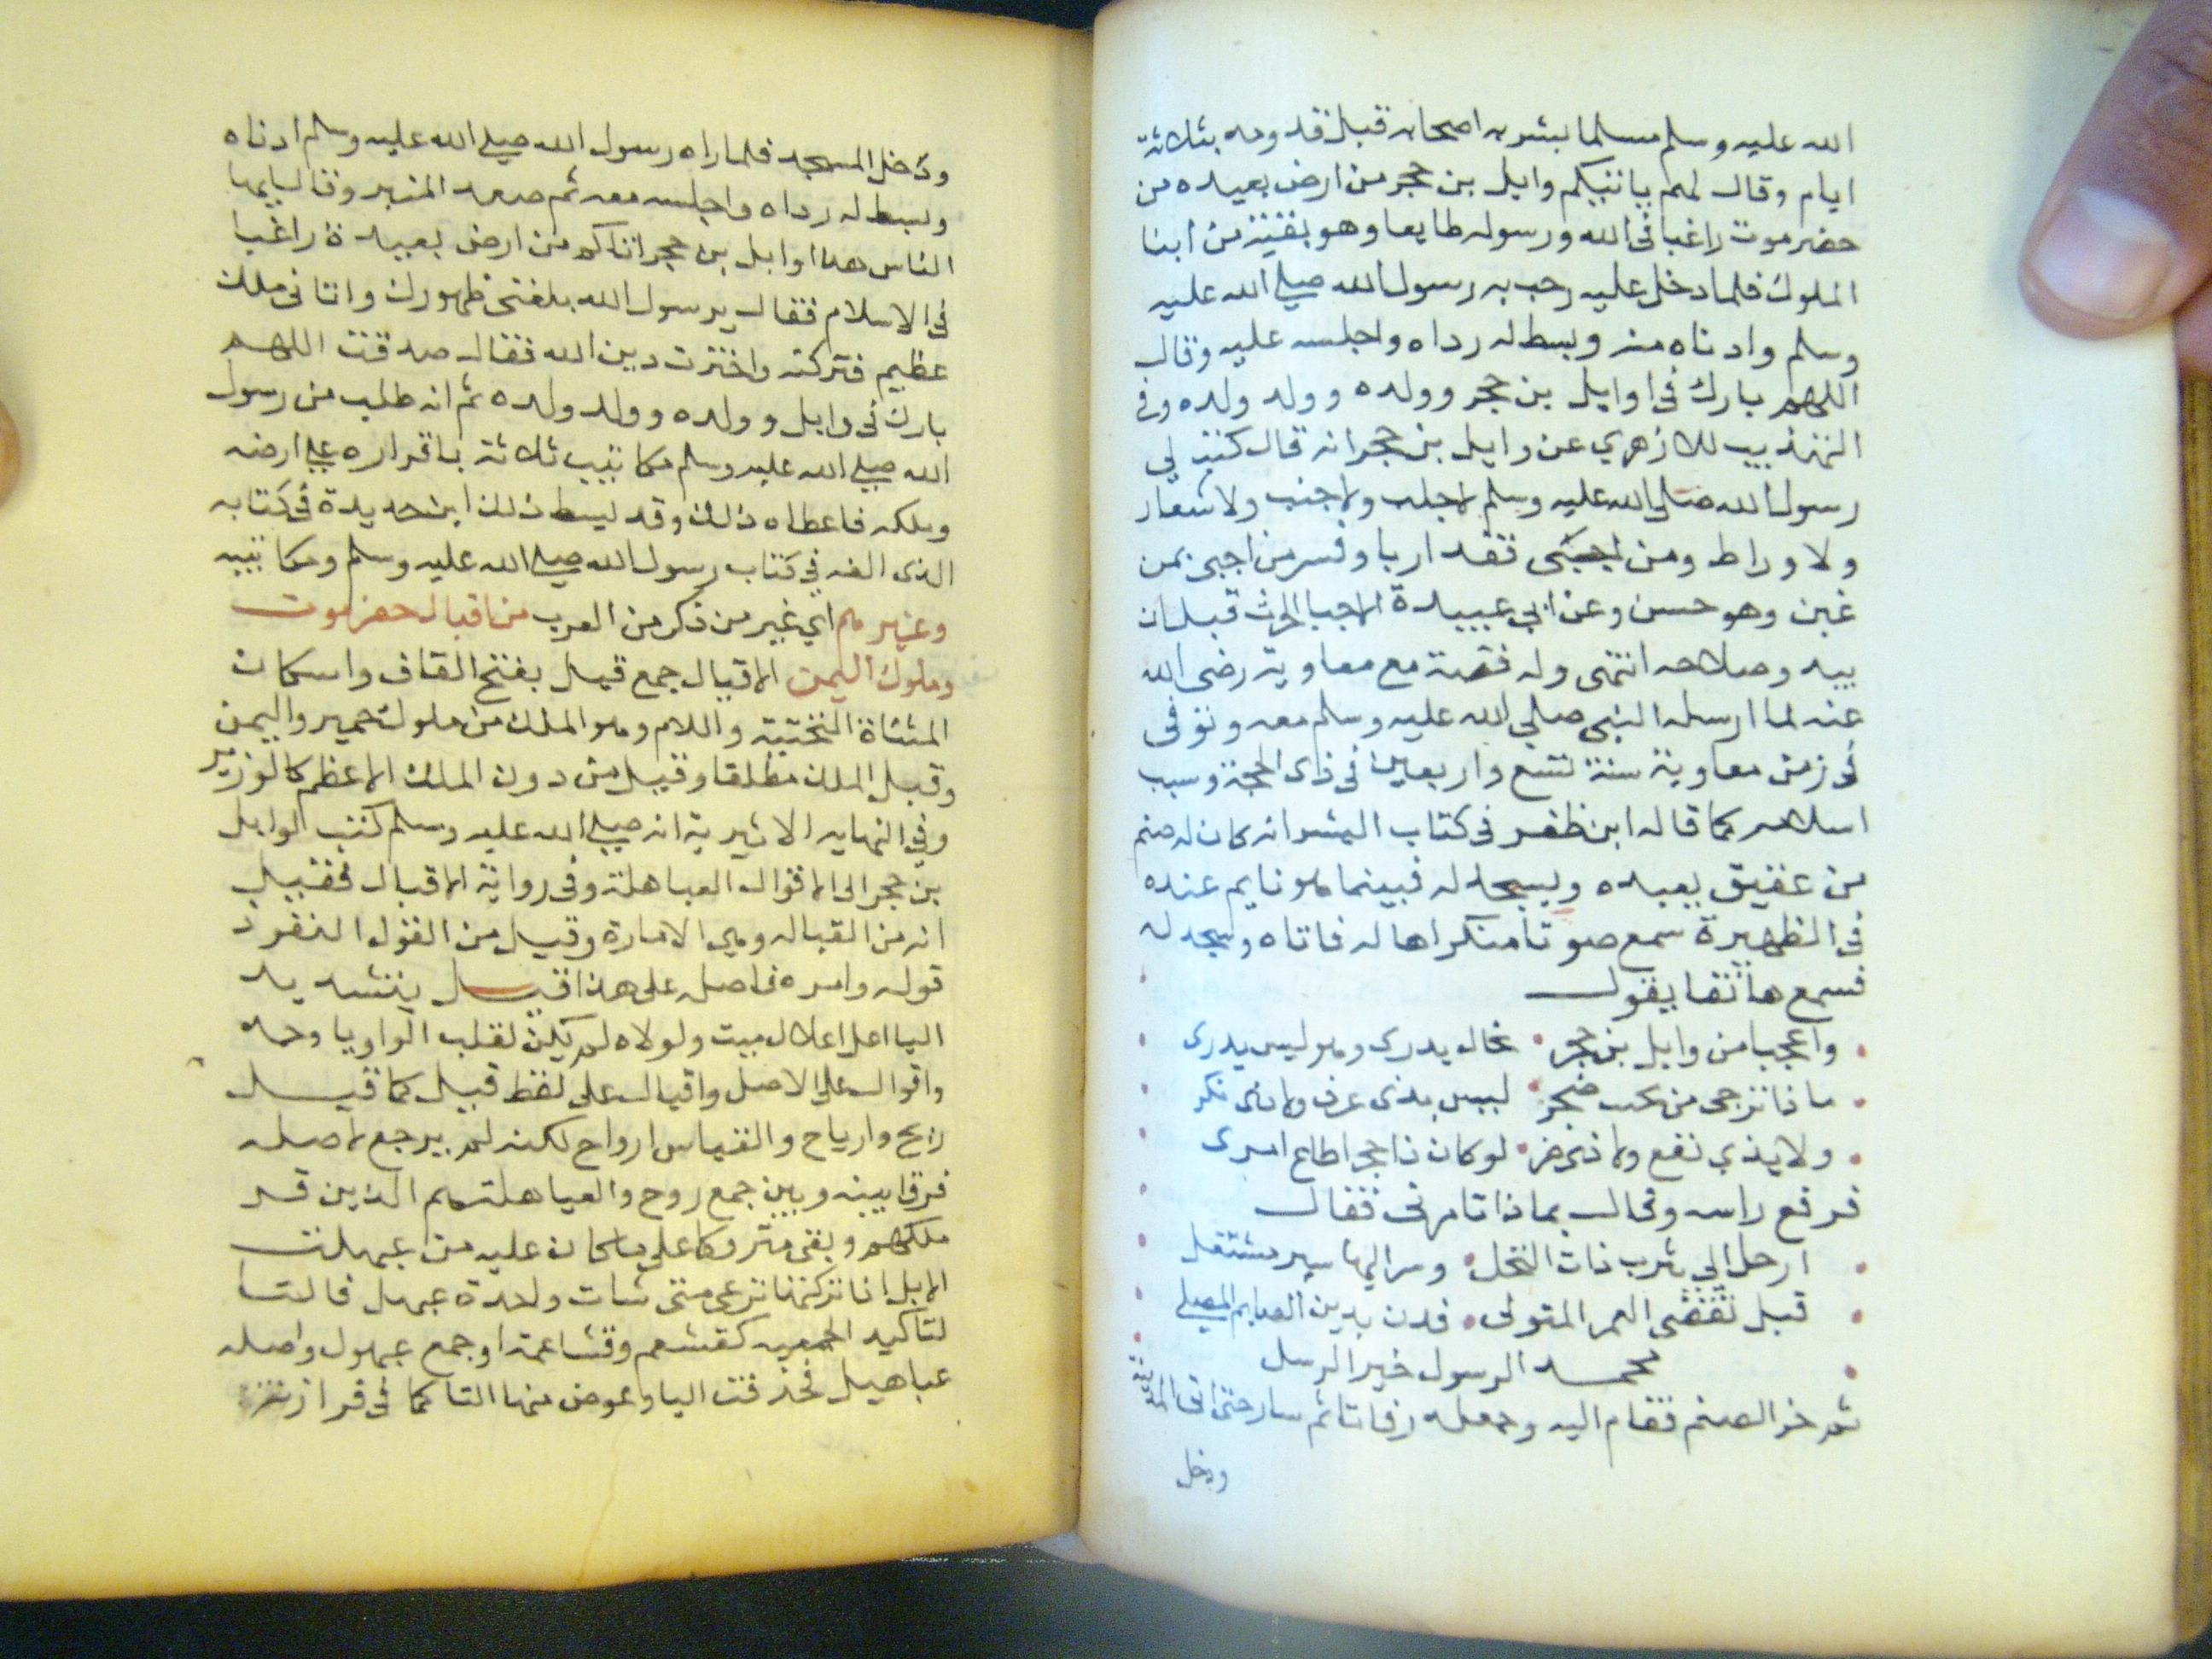 الله عليه وسلم مسلما بشر به اصحابه قبل قدومه بثلاثة
ايام وقال لهم ياتيكم وايل بن حجر من ارض بعيده من
حضرموت راغبا فى الله ورسوله طايعا وهو بقية من ابنا
الملوك فلما دخل عليه رحب به رسول الله صلى الله عليه
وسلم وادناه منه وبسط له رداه واجلسه عليه وقال
اللهم بارك فى وايل بن حجر وولده وولد ولده وفى
التهذيب للازهري عن وايل بن حجر انه قال كتب لي
رسول الله صلى الله عليه وسلم لا جلب ولا جنب ولا شغار
ولا وراط ومن اجبى فقد اربا وفسر من اجبى بمن
غبن وهو حسن وعن ابي عبيدة الاجبا الحرث قبل ان
يبد وصلاحه انتهى وله قصة مع معاوية رضى الله
عنه لما ارسله النبى صلى الله عليه وسلم معه وتوفى
فى زمن معاوية سنة تسع واربعين فى ذى الحجة وسبب
اسلامه كما قاله ابن ظفر فى كتاب البشر انه كان له صنم
من عقيق يعبده ويسجد له فبينما هو نايم عنده
فى الظهيرة سمع صوتا منكرا هاله فاتاه وسجد له
فسمع هاتفا يقول
واعجبا من وايل بن حجر يخال يدرى وهو ليس يدرى
ماذا ترجى من نحت صخر ليس بذى عرف ولا ذى نكر
ولا بذي نفع ولا ذى ضر لو كان ذا حجر اطاع امرى
فرفع راسه وقال بماذا تامرنى فقال
ارحل الي يثرب ذات النخل وسر اليها سير مشتمل
قبل تقضى العمر المتولى فدن بدين الصايم المصلى
محمد الرسول خير الرسل
ثم خر الصنم فقام اليه وجعله رفاتا ثم سار حتى اتى المدينة
ودخل
ودخل المسجد فلما راه رسول الله صلى الله عليه وسلم ادناه
وبسط له رداه واجلسه معه ثم صعد المنبر وقال ايها
الناس هذا وايل بن حجر اتاكم من ارض بعيدة راغبا
فى الاسلام فقال يرسول الله بلغنى ظهورك وانا فى ملك
عظيم فتركته واخترت دين الله فقال صدقت اللهم
بارك فى وايل وولده وولد ولده ثم انه طلب من رسول
الله صلى الله عليه وسلم مكاتيب ثلاثة باقراره على ارضه
وملكه فاعطاه ذلك وقد بسط ذلك ابن حديدة فى كتابه
الذى الفه في كتاب رسول الله صلى الله عليه وسلم ومكاتيبه
وغيرهم اي غير من ذكر من العرب من اقيال حضرموت
وملوك اليمن الاقيال جمع قيل بفتح القاف واسكان
المثناة التحتية واللام وهو الملك من ملوك حمير واليمن
وقيل الملك مطلقا وقيل من دون الملك الاعظم كالوزير
وفي النهايه الاثيرية انه صلى الله عليه وسلم كتب لوايل
بن حجر الى الاقوال العباهلة وفى رواية الاقيال فقيل
انه من القباله وهي الامارة وقيل من القول لنفوذ
قوله وامره فاصله على هذا قيل بتشديد
اليا اعل اعلال ميت ولولاه لم يكن لقلب الواو يا وجه
واقوال على الاصل واقيال على لفظ قيل كما قيل
ريح وارياح والقياس ارواح لكنه لم يرجع لاصله
فرقا بينه وبين جمع روح والعباهلة هم الذين قر
ملكهم وبقى متروكا على ما كان عليه من عبهلت
الابل اذا تركتها ترعى متى شات واحدة عبهل فالتا
لتاكيد الجمعيه كقشعم وقشاعمة او جمع عبهول واصله
عباهيل فحذفت اليا وعوض منها التا كما فى فرازنة